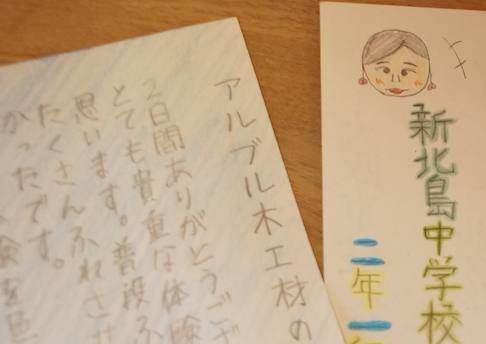 アルブル木工材の
2日間ありがとうござ
とても貴重な体験
思います。普段ふ
たくさんふれさせ
かったです。
新北島中学校
二年二